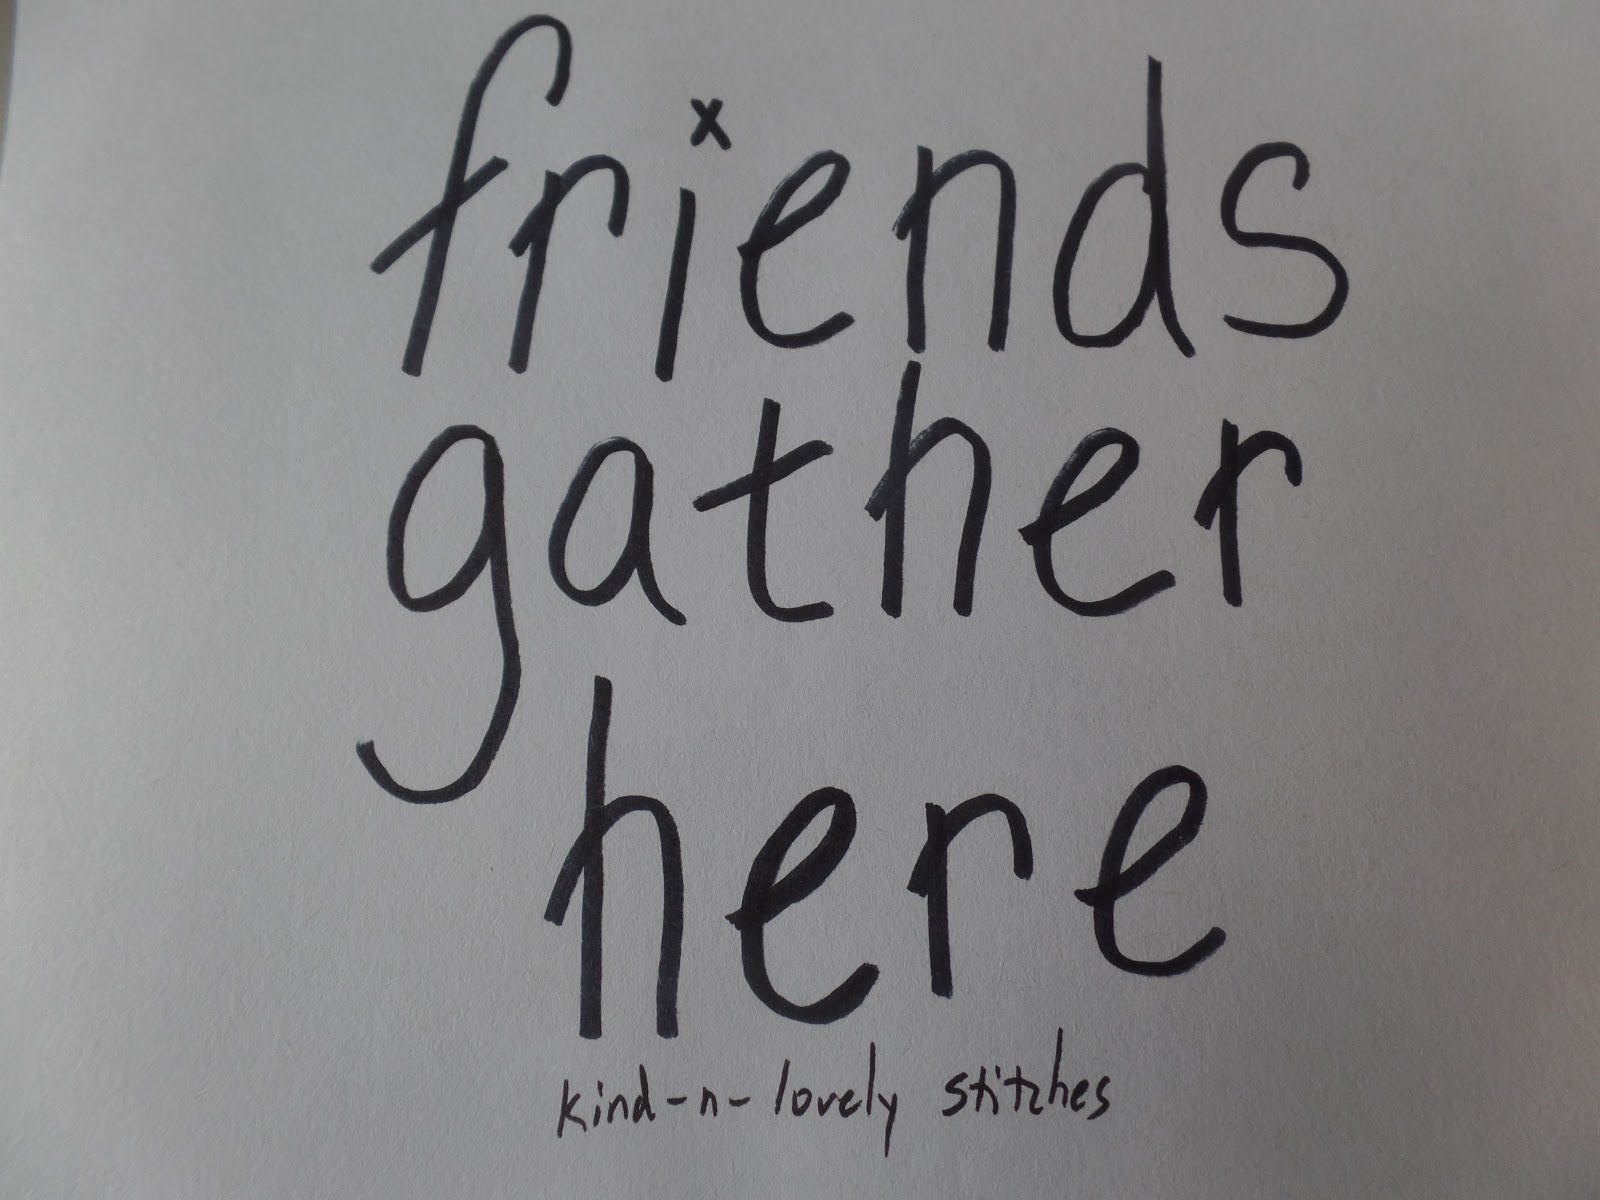 friends
gather
here
kind-n-lovely stitches